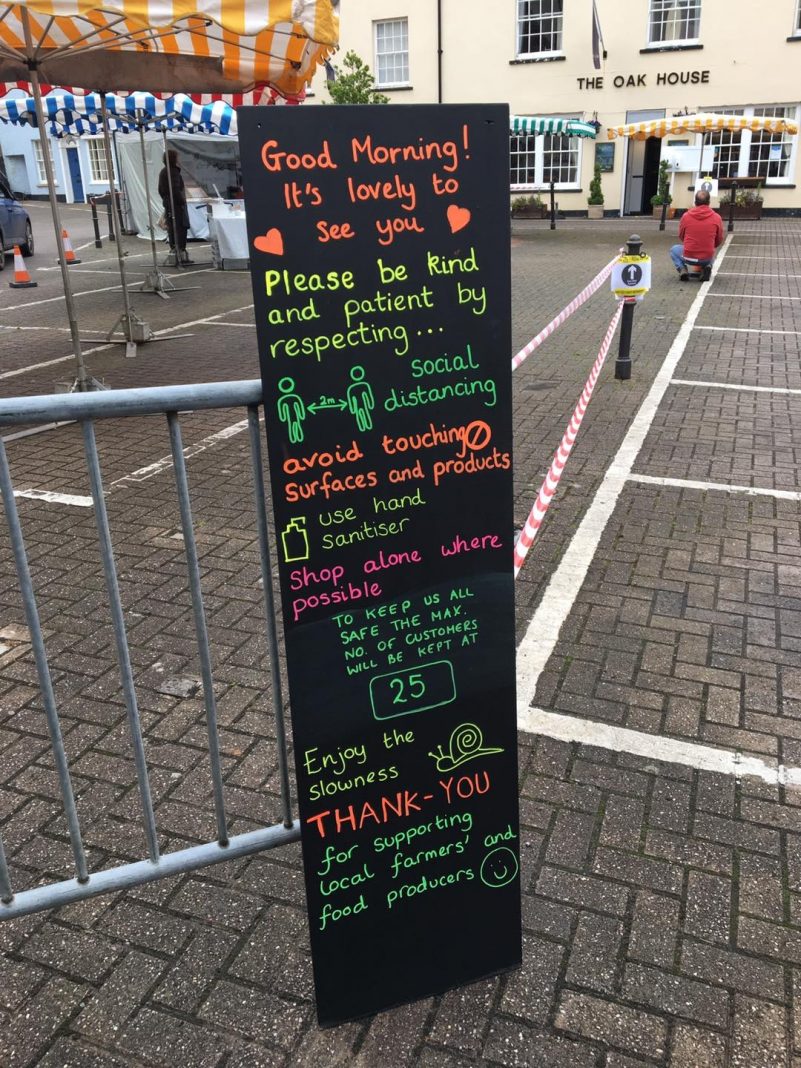 THE OAK HOUSE
Good Morning!
It's lovely to
see you
Please be kind
and patient by
respecting...
2m
Social
distancing
avoid touching
surfaces and products
use hand
sanitiser
Shop alone where
possible
TO KEEP US ALL
SAFE THE MAX.
NO. OF CUSTOMERS
WILL BE KEPT AT
25
Enjoy the
slowness
THANK-YOU
for supporting
local farmers' and
food producers